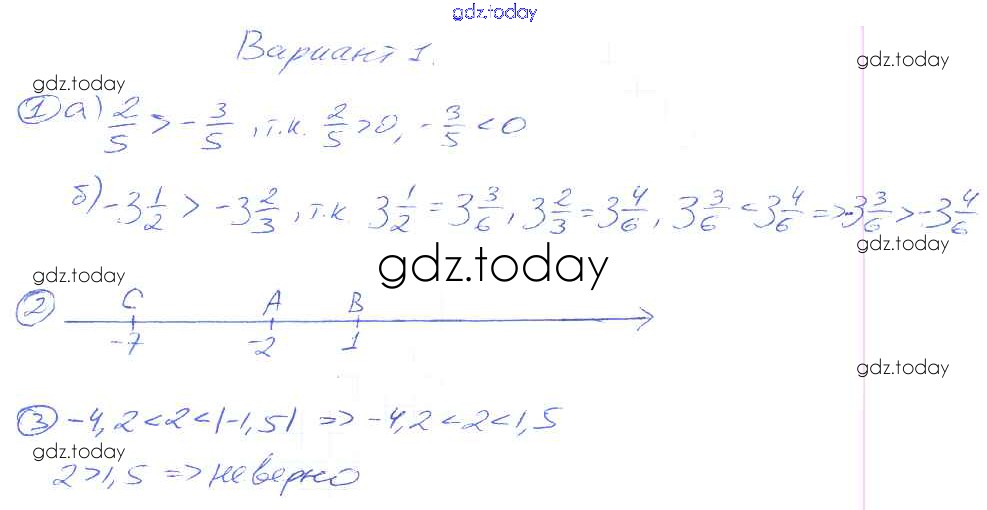 gdz.today
Вариант 1.
gdz.today
gdz.today
① а) 2/5 > -3/5, т.к. 2/5 > 0, -3/5 < 0
б) -3 1/2 > -3 2/3, т.к 3 1/2 = 3 3/6, 3 2/3 = 3 4/6, 3 3/6 < 3 4/6 => -3 3/6 > -3 4/6
gdz.today
gdz.today
gdz.today
② C A B
-7 -2 1
gdz.today
③ -4,2 < 2 < |-1,5| => -4,2 < 2 < 1,5
gdz.today
2 > 1,5 => неверно
gdz.today